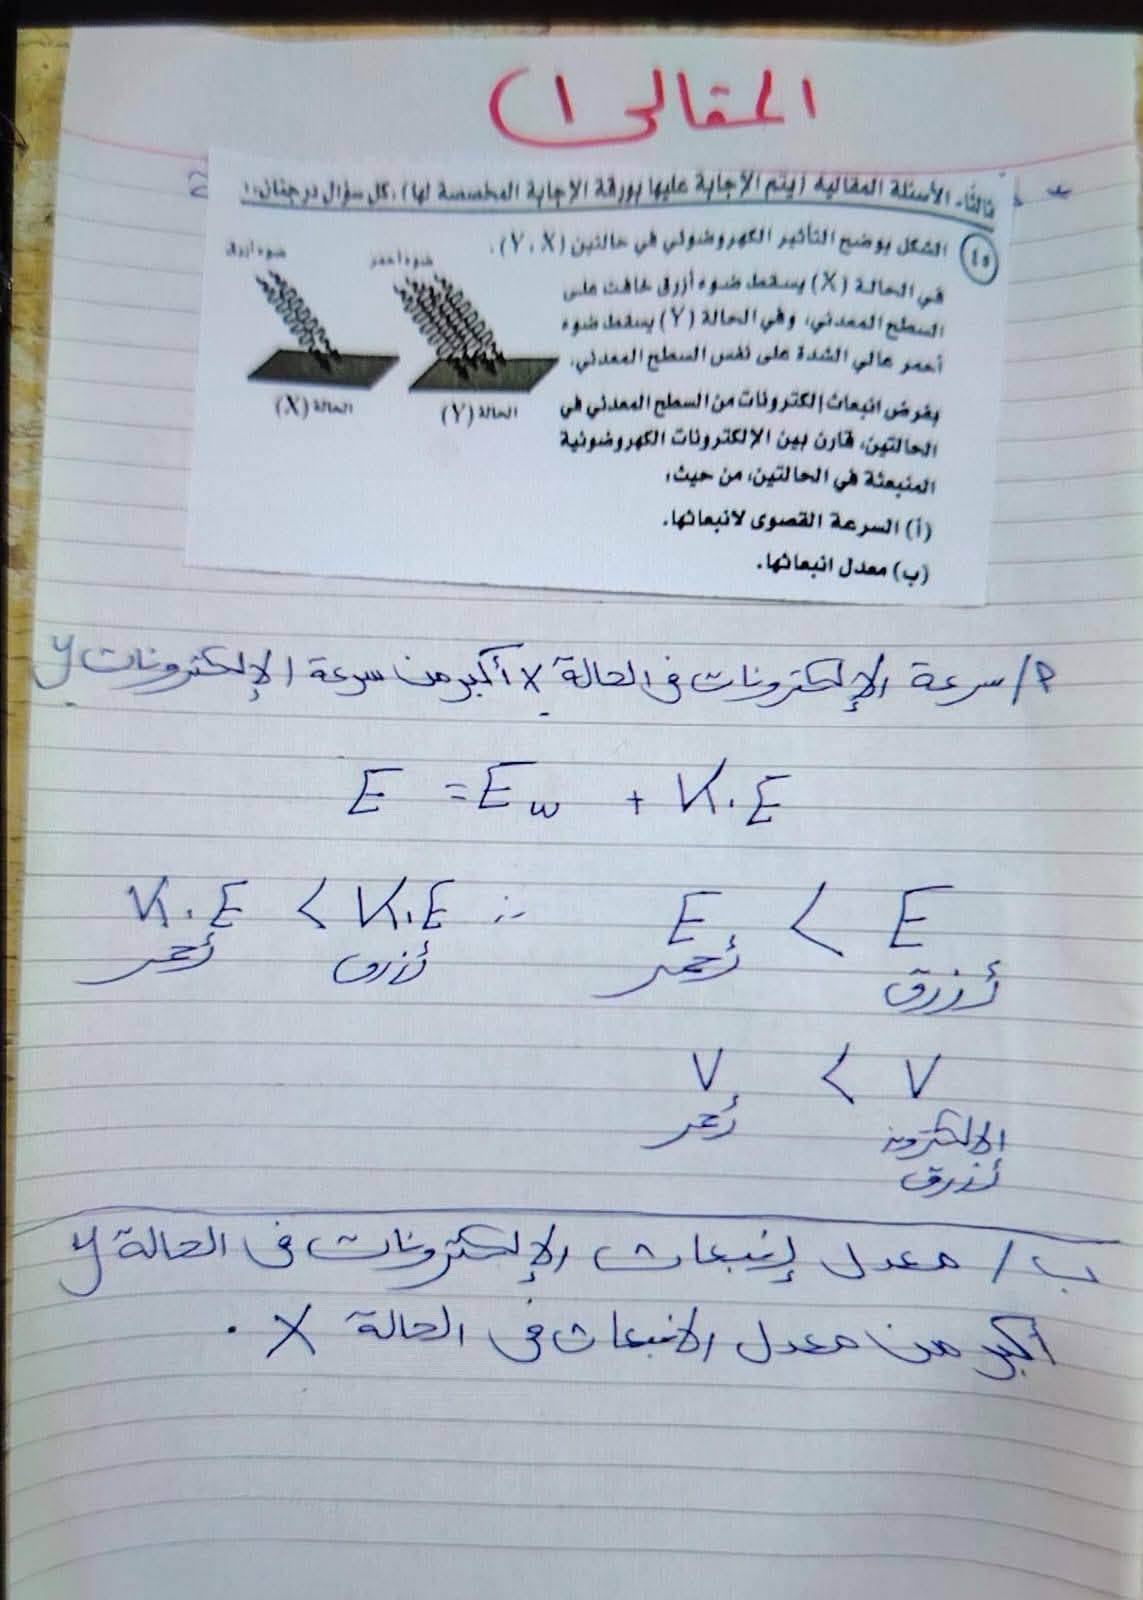 المقالى ١
ثالثًا، الأسئلة المقالية (يتم الإجابة عليها بورقة الإجابة المخصصة لها)، (كل سؤال درجتان)،
٤٥ الشكل يوضح التأثير الكهروضوئي في حالتين (Y، X).
ضوء أحمر
ضوء أزرق
في الحالة (X) يسقط ضوء أزرق خافت على
السطح المعدني، وفي الحالة (Y) يسقط ضوء
أحمر عالي الشدة على نفس السطح المعدني.
الحالة (Y)
الحالة (X)
بفرض انبعاث إلكترونات من السطح المعدني في
الحالتين، قارن بين الإلكترونات الكهروضوئية
المنبعثة في الحالتين، من حيث،
(أ) السرعة القصوى لانبعاثها.
(ب) معدل انبعاثها.
أ/ سرعة الإلكترونات فى الحالة X أكبر من سرعة الإلكترونات y
E = Ew + K.E
E < E ∴ K.E < K.E
أزرق أحمر أزرق أحمر
V < V
الإلكترون أحمر
أزرق
ب/ معدل إنبعاث الإلكترونات فى الحالة y
أكبر من معدل الانبعاث فى الحالة X .